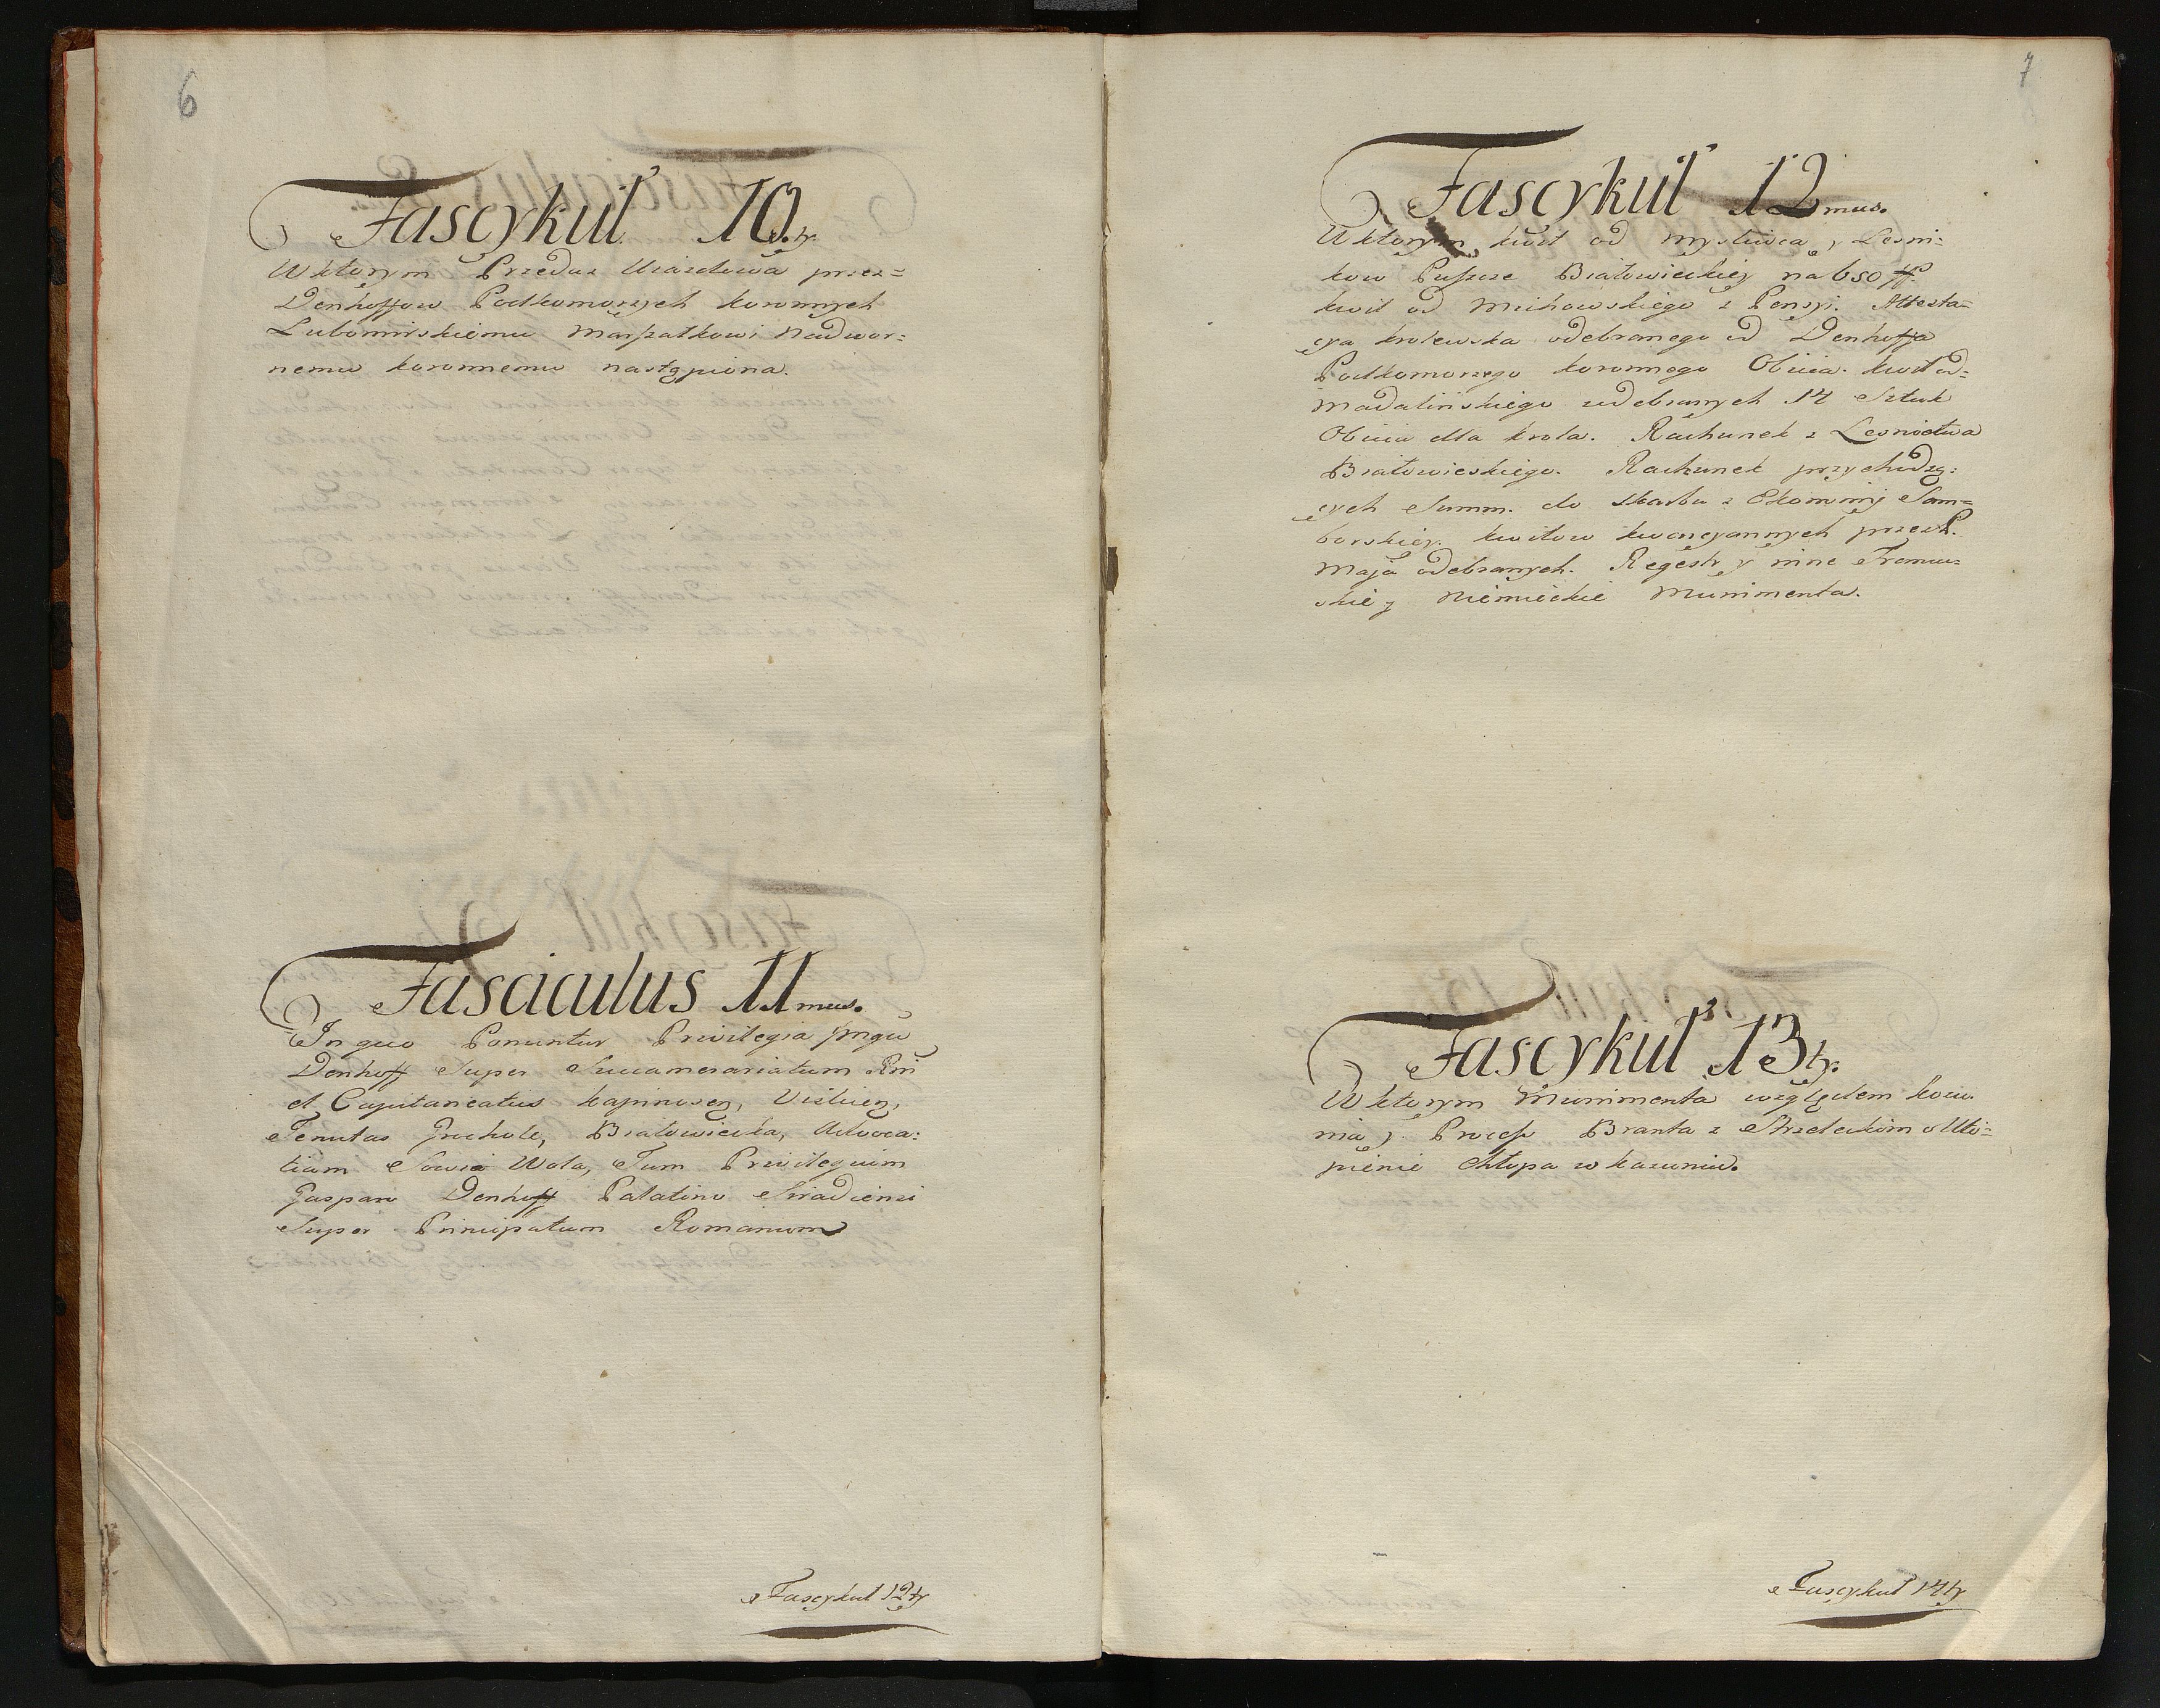 6
Fascykuł 10.ty
W ktorym Przedaz Uiazdowa przez=
Denhoffow Podkomorzych koronnych
Lubomirskiemu Marszałkowi Nadwor=
nemu koronnemu nastąpiona.
Fasciculus 11mus.
In quo Ponuntur Privilegia
Denhoff Super Succamerariatum Rni
et Capitaneatus kapinosen, Vislicen,
Tenutas Białowieska, Advoca=
tiam Sowia Wola, Tum Privilegium
Gasparo Denhoff Palatino Siradiensi
Super Principatum Romanum
Fascykuł 12ty
7
Fascykuł 12mus.
W ktorym kwit od mysliwca y Lesni=
kow Puszcze Białowieckiey na 650 ff.
kwit od Michowskiego z Pensyi. Attesta=
cya krolewska odebranego od Denhoffa
Podkomorzego koronnego Obicia. kwit od=
Madalińskiego zodebranych 14 Sztuk
Obicia dla krola. Rachunek z Lesnictwa
Białowieskiego. Rachunek przychodzą=
cych Summ. do Skarbu z Ekonomij Sam=
borskiey. kwitow kwarcyannych przez P.
Maja odebranych. Regestr y inne Francu=
skie y Niemieckie Munimenta.
Fascykuł 13ty.
W ktorym Munimenta względem kozu=
nia y. Process Branta z Strzeleckim o Uto=
pienie Chłopa w kazuniu.
Fascykuł 14ty